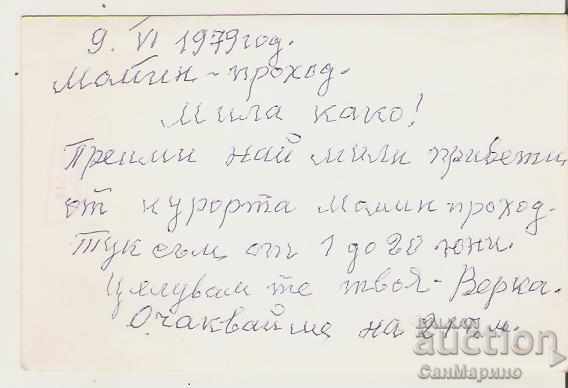 9. VI 1979 год.
Момин-проход.
Мила како!
Приеми най мили привети
от курорта Момин проход.
Тук съм от 1 до 20 юни.
Целувам те твоя - Верка.
Очаквай ме на 21
auction
СанМарино